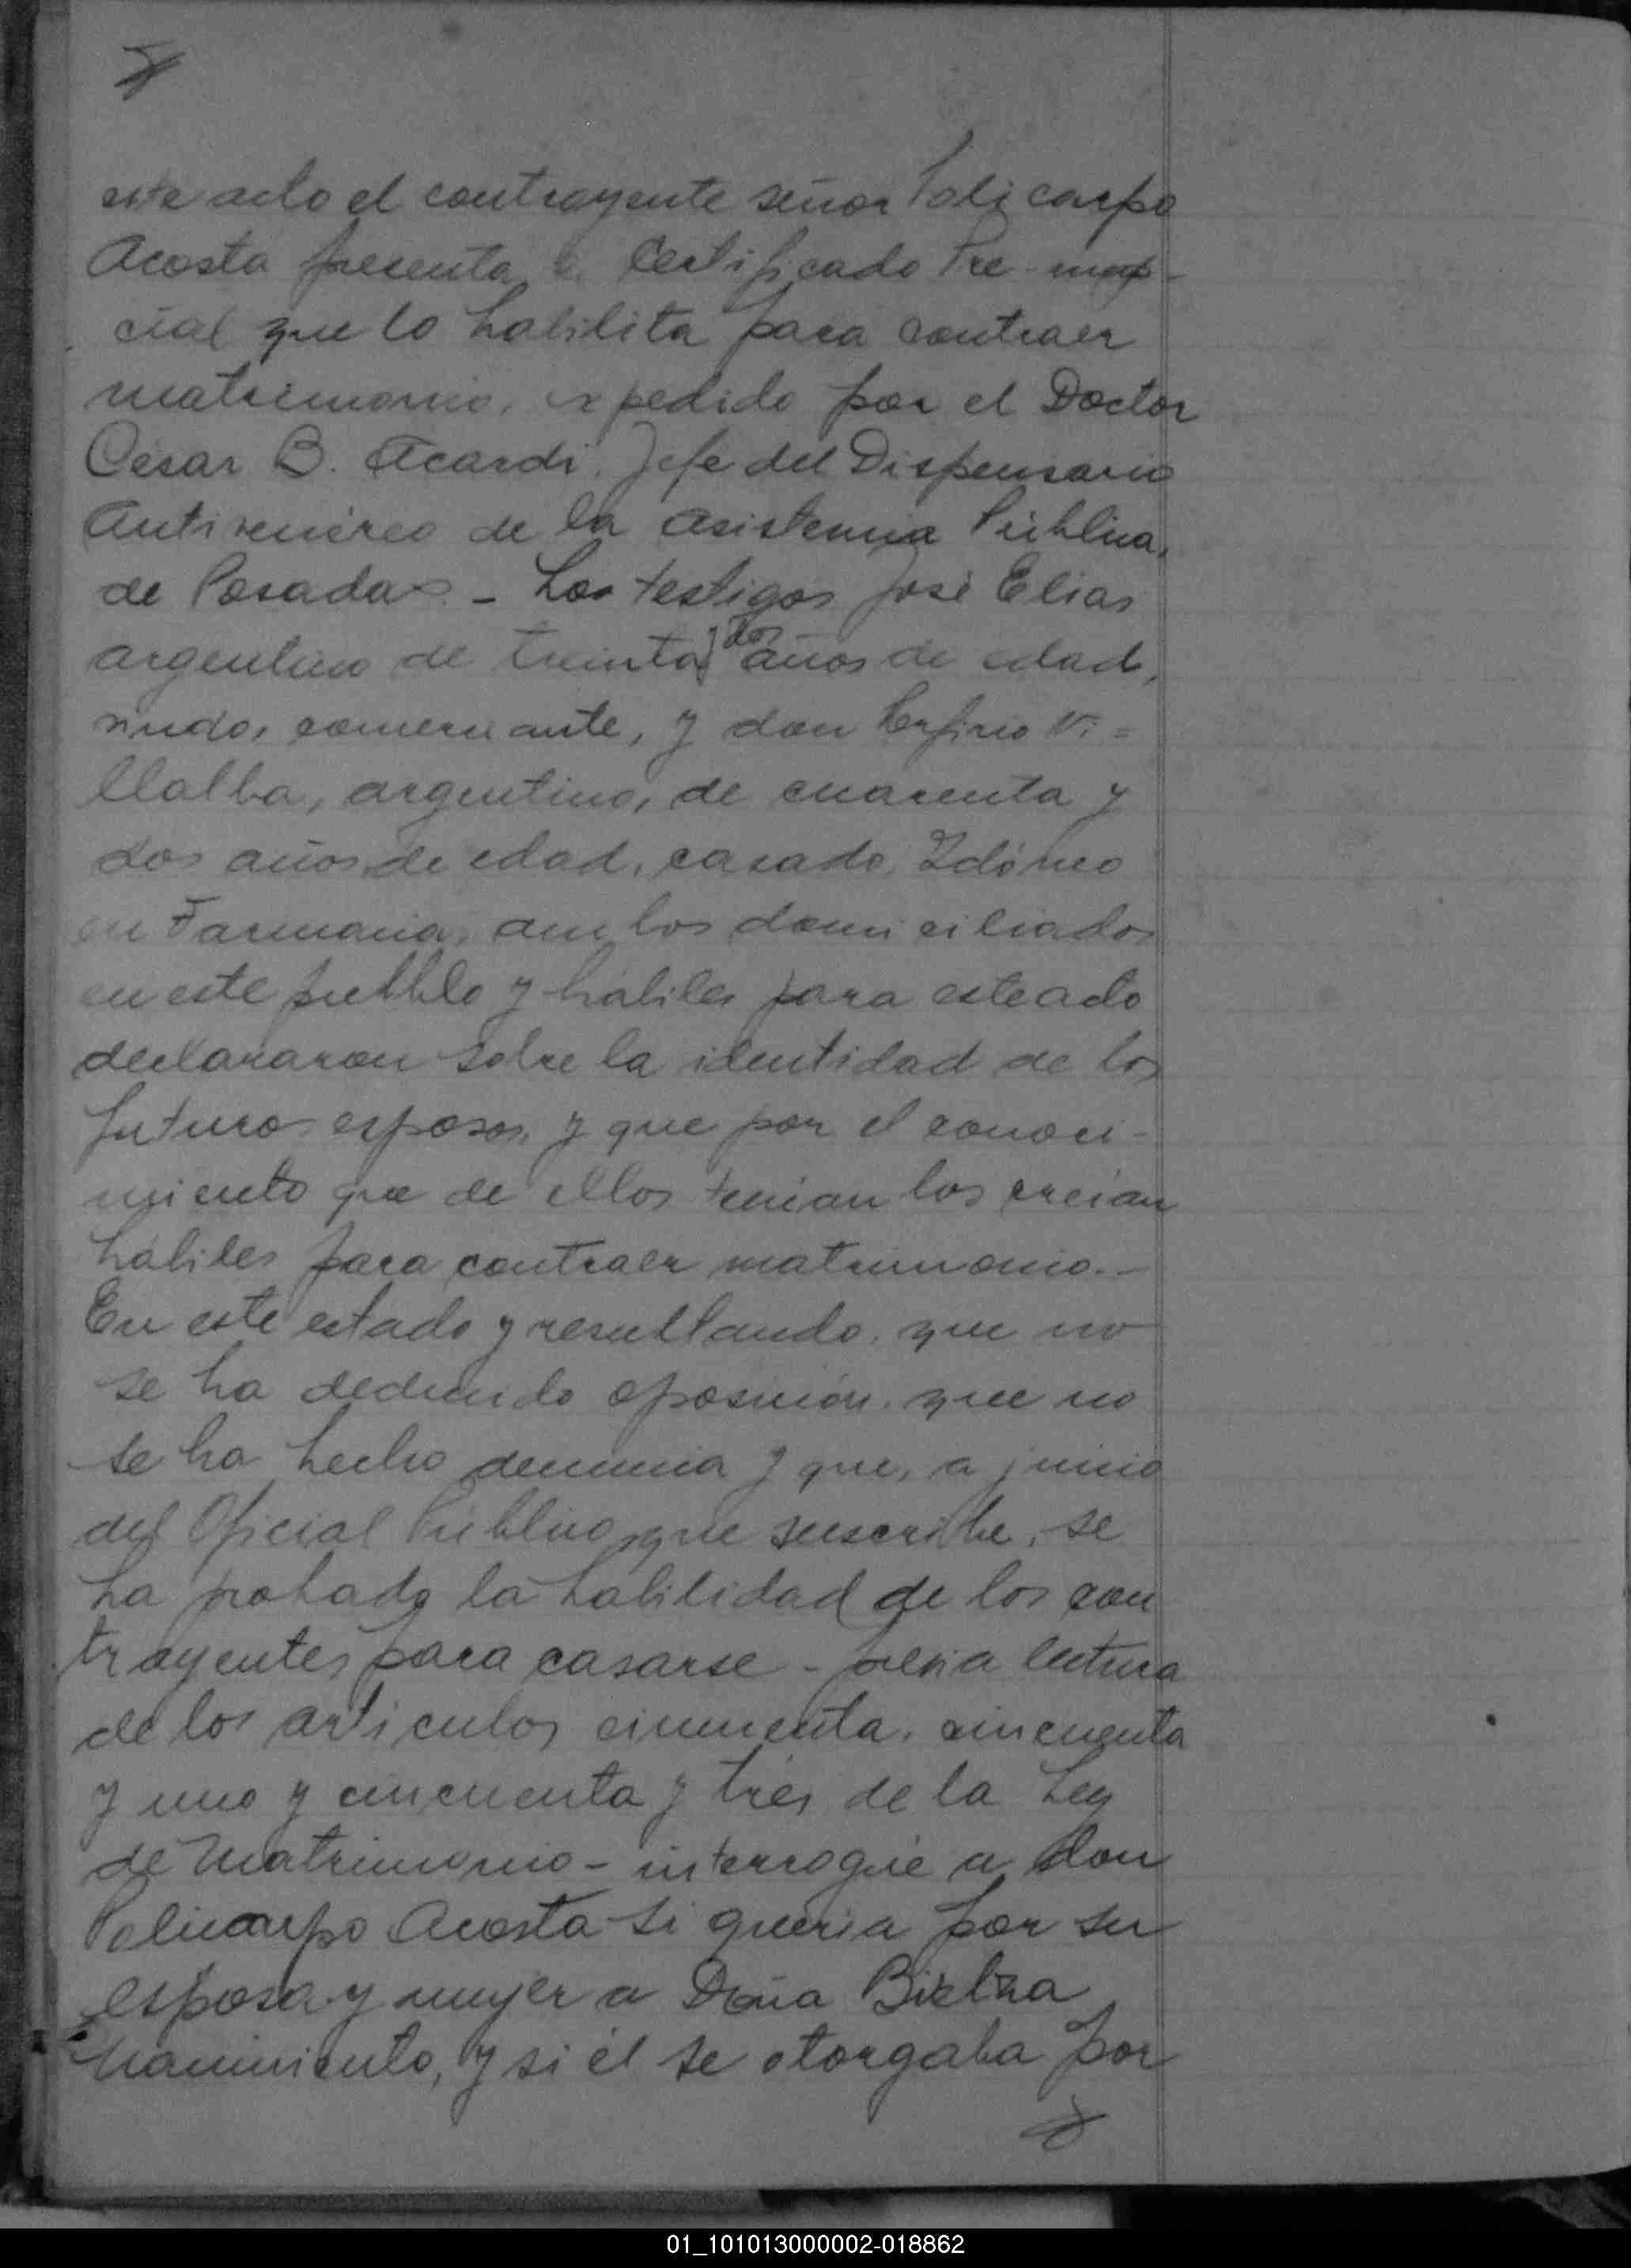 este acto el contrayente señor Policarpo
Acosta presenta Certificado Pre-nup-
cial que lo habilita para contraer
matrimonio, expedido por el Doctor
César B. Acardi, Jefe del Dispensario
Antivenéreo de la Asistencia Pública,
de Posadas.- Los testigos José Elias
argentino de treinta y dos años de edad,
viudo, comerciante, y don Porfirio Vi=
llalba, argentino, de cuarenta y
dos años de edad, casado, Idóneo
en Farmacia, ambos domiciliados
en este pueblo y hábiles para este acto
declararon sobre la identidad de los
futuros esposos, y que por el conoci-
miento que de ellos tenían los creían
hábiles para contraer matrimonio.-
En este estado y resultando, que no
se ha deducido oposición, que no
se ha hecho denuncia y que, a juicio
del Oficial Público, que suscribe, se
ha probado la habilidad de los con
trayentes para casarse - previa lectura
de los artículos cincuenta, cincuenta
y uno y cincuenta y tres de la Ley
de Matrimonio - interrogué a don
Policarpo Acosta si quería por su
esposa y mujer a Doña
Nacimiento, y si él se otorgaba por
01_101013000002-018862